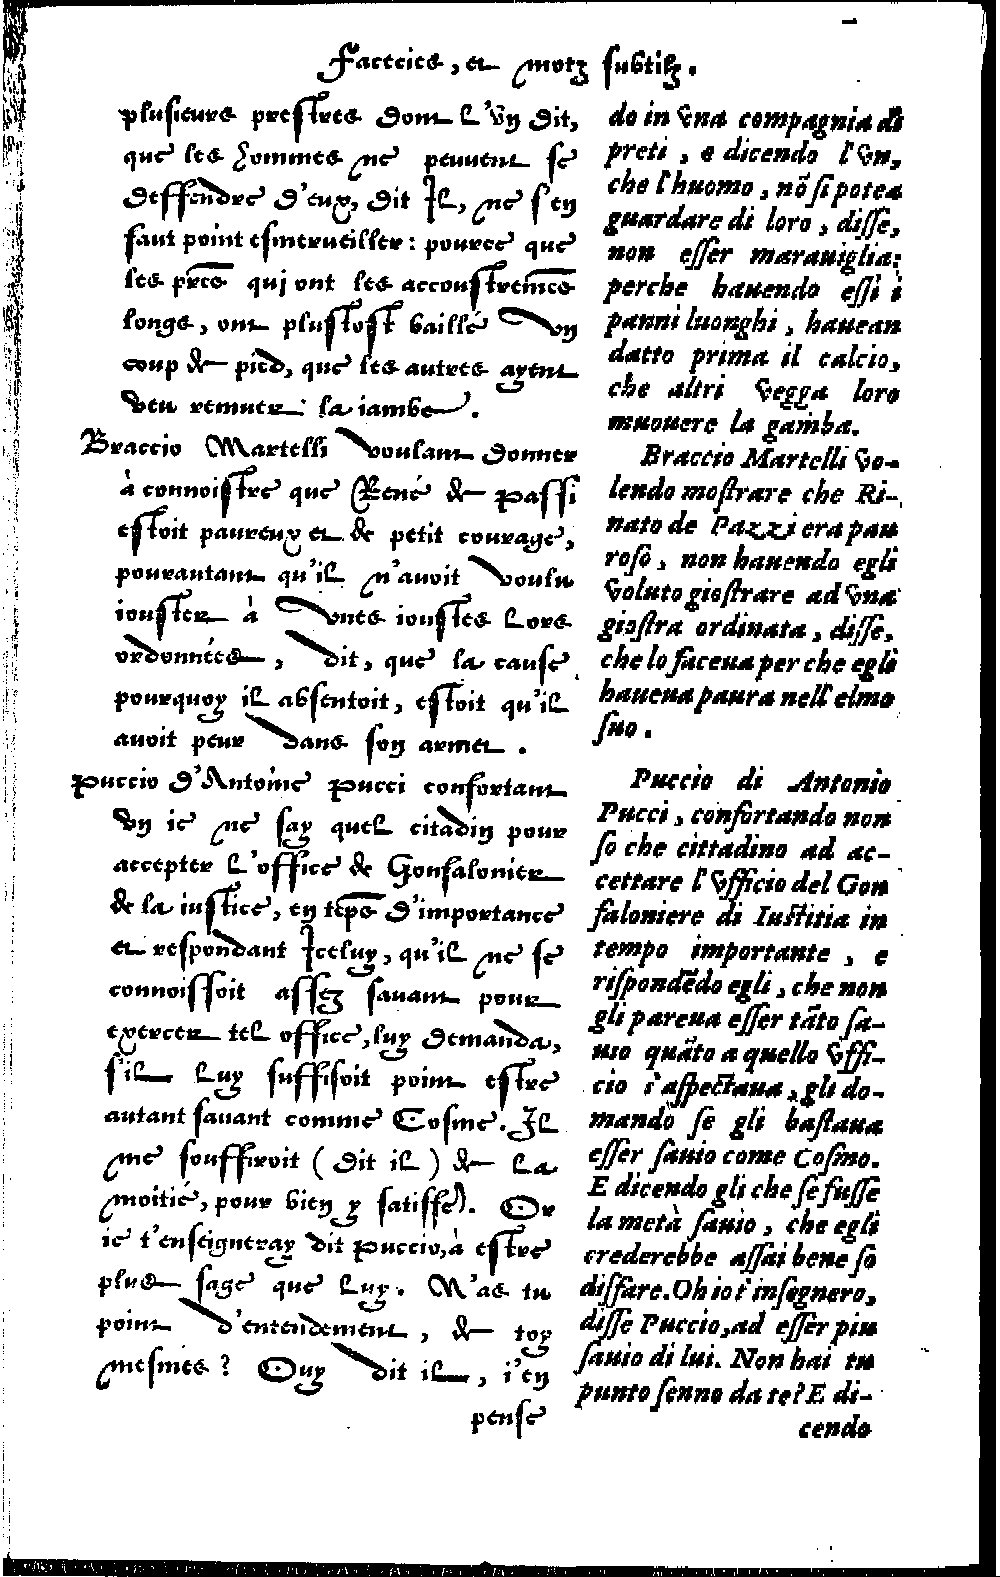 Facecies, et motz subtilz.
plusieurs prestres dont l'vn dit,
que les hommes ne peuvent se
deffendre d'eux, dit Il, ne s'en
faut point esmerueiller: pource que
les prẽs qui ont les accoustremẽs
longs, ont plustost baillé vn
coup de pied, que les autres ayent
veu remuer la iambe.
Braccio Martelli voulant donner
à connoistre que René de Passi
estoit paureux et de petit courage,
pourautant qu'il n'auoit voulu
iouster à vnes ioustes lors
ordonnées, dit, que la cause
pourquoy il absentoit, estoit qu'il
avoit peur dans son armet.
Puccio d'Antoine Pucci confortant
vn ie ne say quel citadin pour
accepter l'office de Gonfalonier
de la iustice, en tẽps d'importance
et respondant Iceluy, qu'il ne se
connoissoit assez savant pour
exercer tel office, luy demanda,
s'il luy suffisoit point estre
autant savant comme Cosme. Il
me souffiroit (dit il) de la
moitié, pour bien y satisfe). Or
ie t'enseigneray dit Puccio, à estre
plus sage que luy. N'as tu
point d'entendement, de toy
mesmes? Ouy dit il, i'en
pense
do in vna compagnia di
preti, e dicendo l'vn,
che l'huomo, nõ si potea
guardare di loro, disse,
non esser marauiglia:
perche hauendo essi i
panni luonghi, hauean
datto prima il calcio,
che altri vegga loro
muouere la gamba.
Braccio Martelli vo-
lendo mostrare che Ri-
nato de Pazzi era pau
roso, non hauendo egli
voluto giostrare ad vna
giostra ordinata, disse,
che lo faceua per che egli
haueua paura nell' elmo
suo.
Puccio di Antonio
Pucci, confortando non
so che cittadino ad ac-
cettare l'vfficio del Gon
faloniere di Iustitia in
tempo importante, e
rispondẽdo egli, che non
gli pareua esser tãto sa-
uio quãto a quello vffi-
cio s'aspectaua, gli do-
mandò se gli bastaua
esser sauio come Cosmo.
E dicendo gli che se fusse
la metà sauio, che egli
crederebbe assai bene so
disfare. Oh io t'insegnero,
disse Puccio, ad esser piu
sauio di lui. Non hai tu
punto senno da te? E di-
cendo